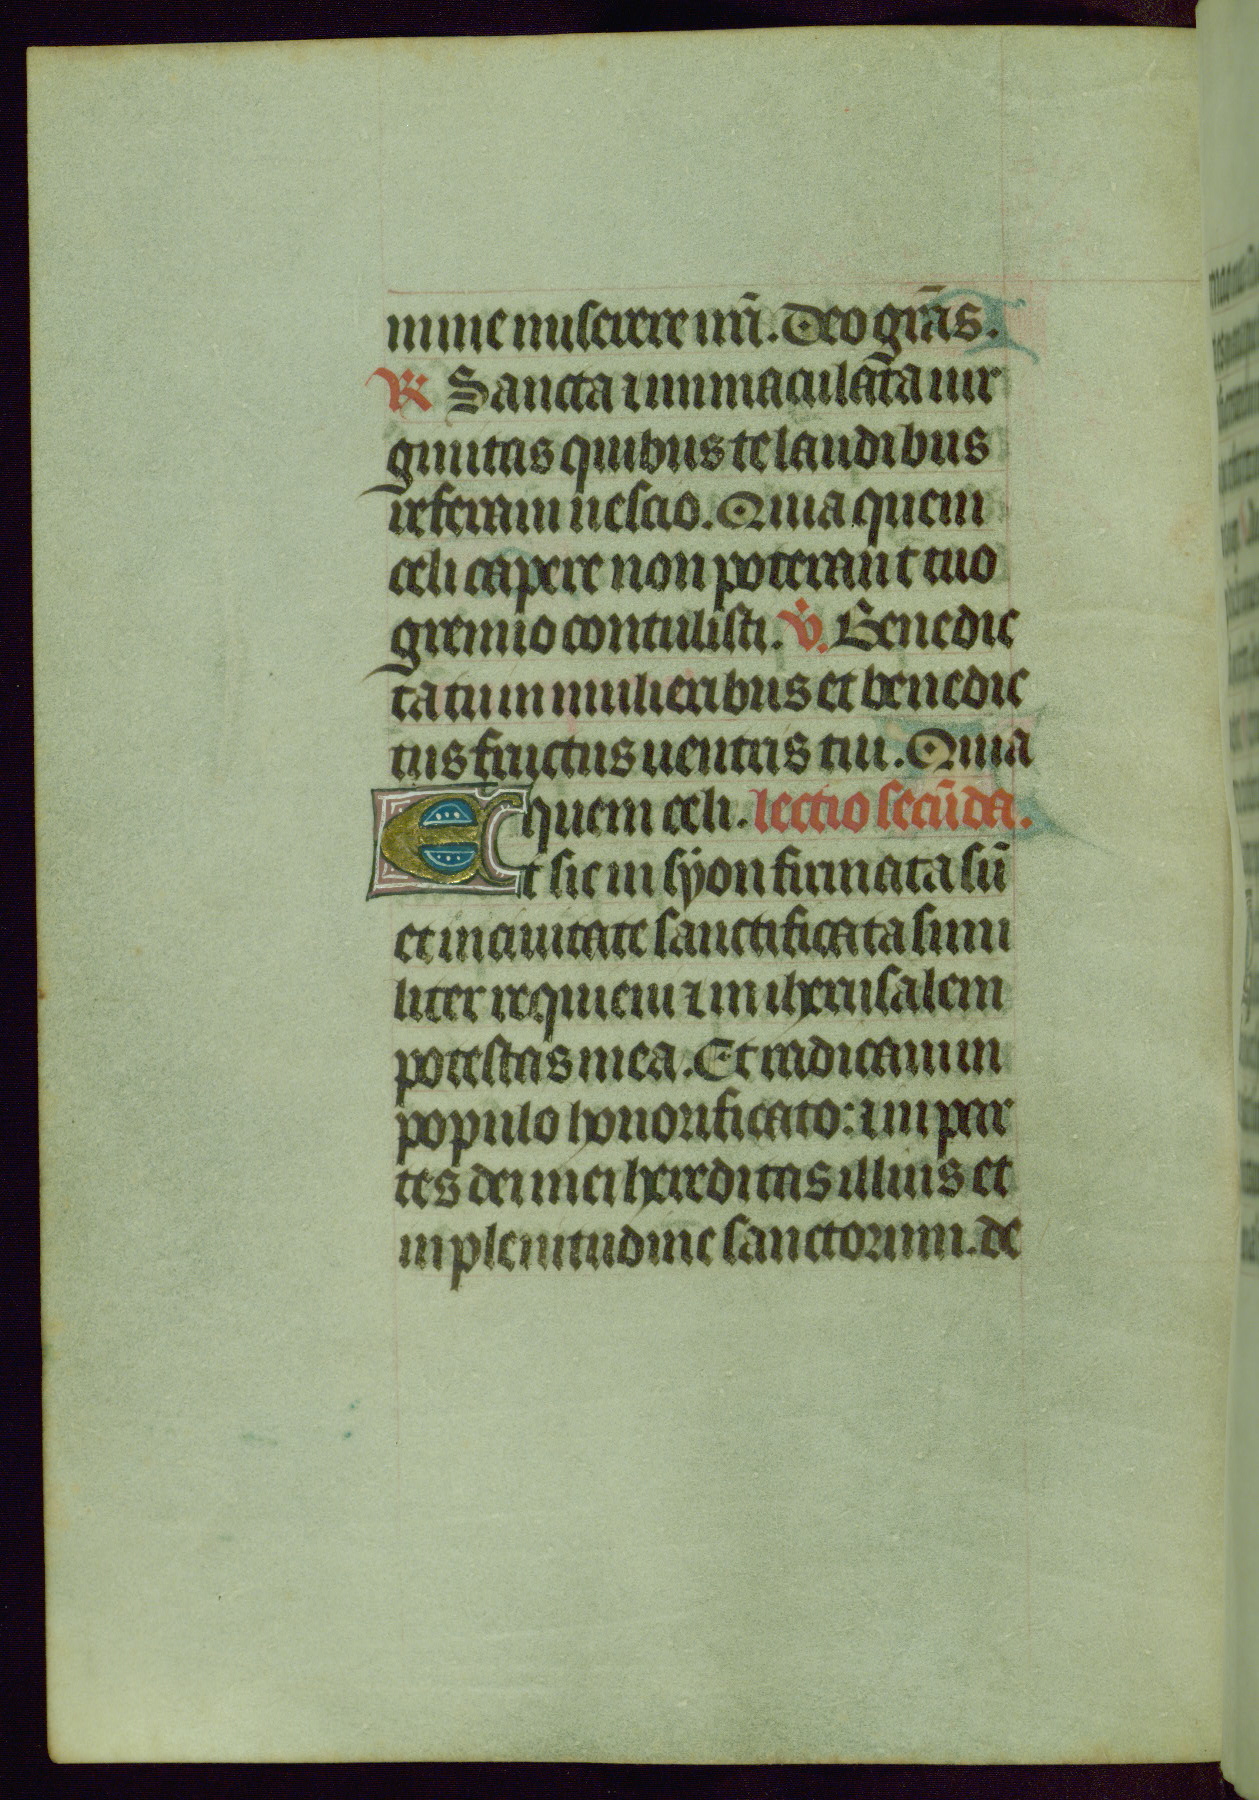 mine miserere nr̄i. Deo gr̄as.
℟ Sancta ⁊ immaculata uir
ginitas quibus te laudibus
referam nescio. Quia quem
celi capere non poterant tuo
gremio contulisti. ℣. Benedic
ta tu in mulieribus et benedic
tus fructus uentris tui. Quia
quem celi. lectio secūda.
Et sic in sÿon firmata sū
et in ciuitate sanctificata simi
liter requieui ⁊ in iherusalem
potestas mea. Et radicaui in
populo honorificato: ⁊ in par
tes dei mei hereditas illius et
in plenitudine sanctorum. de